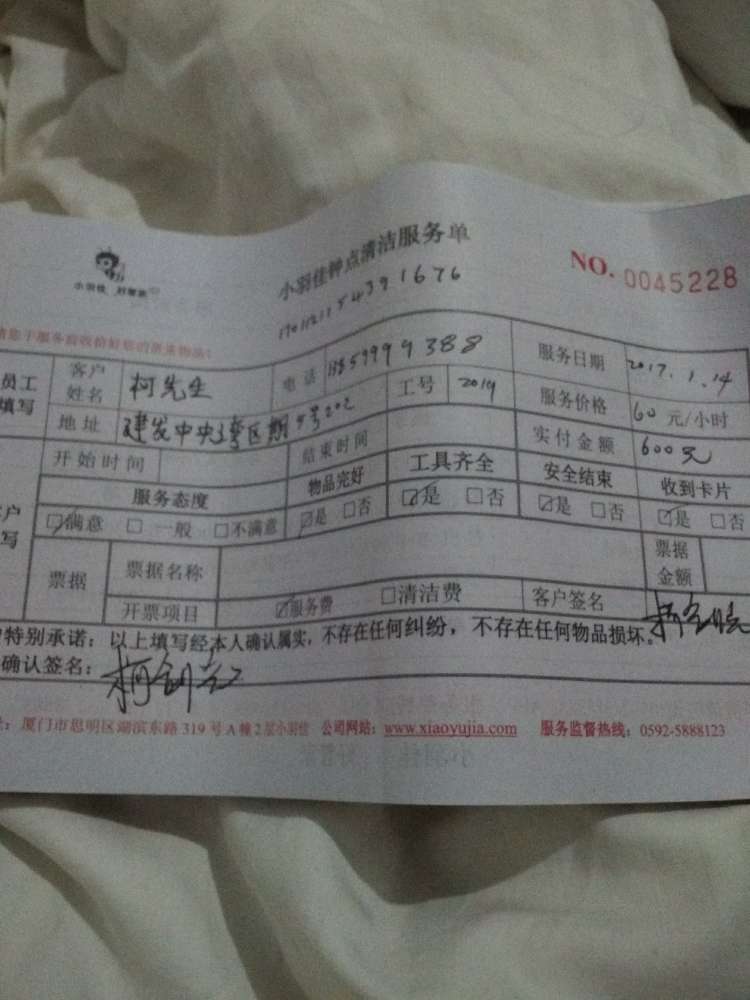 小羽佳 好管家
小羽佳钟点清洁服务单
NO. 0045228
员工填写
客户姓名 柯先生 电话 服务日期 2017.1.14
地址 工号 2019 服务价格 60 元/小时
开始时间 结束时间 实付金额 600元
服务态度 物品完好 工具齐全 安全结束 收到卡片
☑满意 □一般 □不满意 ☑是 □否 ☑是 □否 ☑是 □否 ☑是 □否
票据 票据名称 票据金额
开票项目 ☑服务费 □清洁费 客户签名
特别承诺：以上填写经本人确认属实，不存在任何纠纷，不存在任何物品损坏。
确认签名：
厦门市思明区湖滨东路 319 号 A 幢 2 层小羽佳 公司网站：www.xiaoyujia.com 服务监督热线：0592-5888123